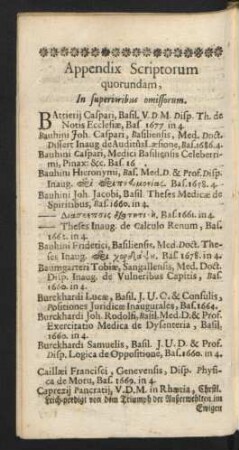 Appendix Scriptorum
quorundam,
In superioribus omissorum.
BAttierij Caspari, Basil. V.D M. Disp. Th. de
Notis Ecclesiæ, Bas. 1677. in 4.
Bauhini Joh. Caspari, Basiliensis, Med. Doct.
Dissert Inaug. de Auditus Læsione, Bas. 1686. 4.
Bauhini Caspari, Medici Basiliensis Celeberri-
mi, Pinax: &c. Bas. 16
Bauhini Hieronymi, Bas. Med. D. & Prof. Disp.
Inaug. Bas. 1658. 4.
Bauhini Joh. Jacobi, Basil. Theses Medicæ de
Spiritibus, Bas. 1660. in 4.
Bas. 1661. in 4.
— Theses Inaug. de Calculo Renum, Bas.
1662. in 4.
Bauhini Friderici, Basiliensis, Med. Doct. The-
ses Inaug. Bas. 1678. in 4.
Baumgarteri Tobiæ, Sangallensis, Med. Doct.
Disp. Inaug. de Vulneribus Capitis, Bas.
1660. in 4.
Burckhardi Lucæ, Basil. J. U. C. & Consulis,
Positiones Juridicæ Inaugurales, Bas. 1664.
Burckhardi Joh. Rodolfi, Basil. Med. D. & Prof.
Exercitatio Medica de Dysenteria, Basil.
1660. in 4.
Burckhardi Samuelis, Basil. J. U. D. & Prof.
Disp. Logica de Oppositione, Bas. 1660. in 4.
Caillæi Francisci, Genevensis, Disp. Physi-
ca de Motu, Bas. 1669. in 4.
Caprezij Pancratij, V.D.M. in Rhætia, Christl.
Leich-predigt von dem Triumph der Außerwehlten im
Ewigen